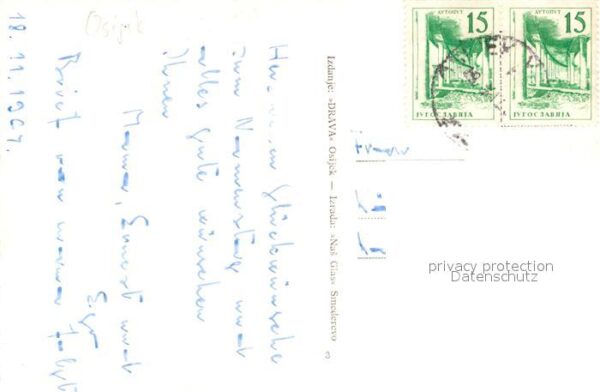 18.11.1967.
Osijek
Herzlichen Glückwünsche
zum Namenstag und
alles gute wünschen
Ihnen
Mama, Ernest und
Brief von mama folgt
Izdanje: »DRAVA« Osijek — Izrada: »Naš Glas« Smederevo
3
Frau
АУТОПУТ
15
ЈУГОСЛАВИЈА
АУТОПУТ
15
ЈУГОСЛАВИЈА
privacy protection
Datenschutz